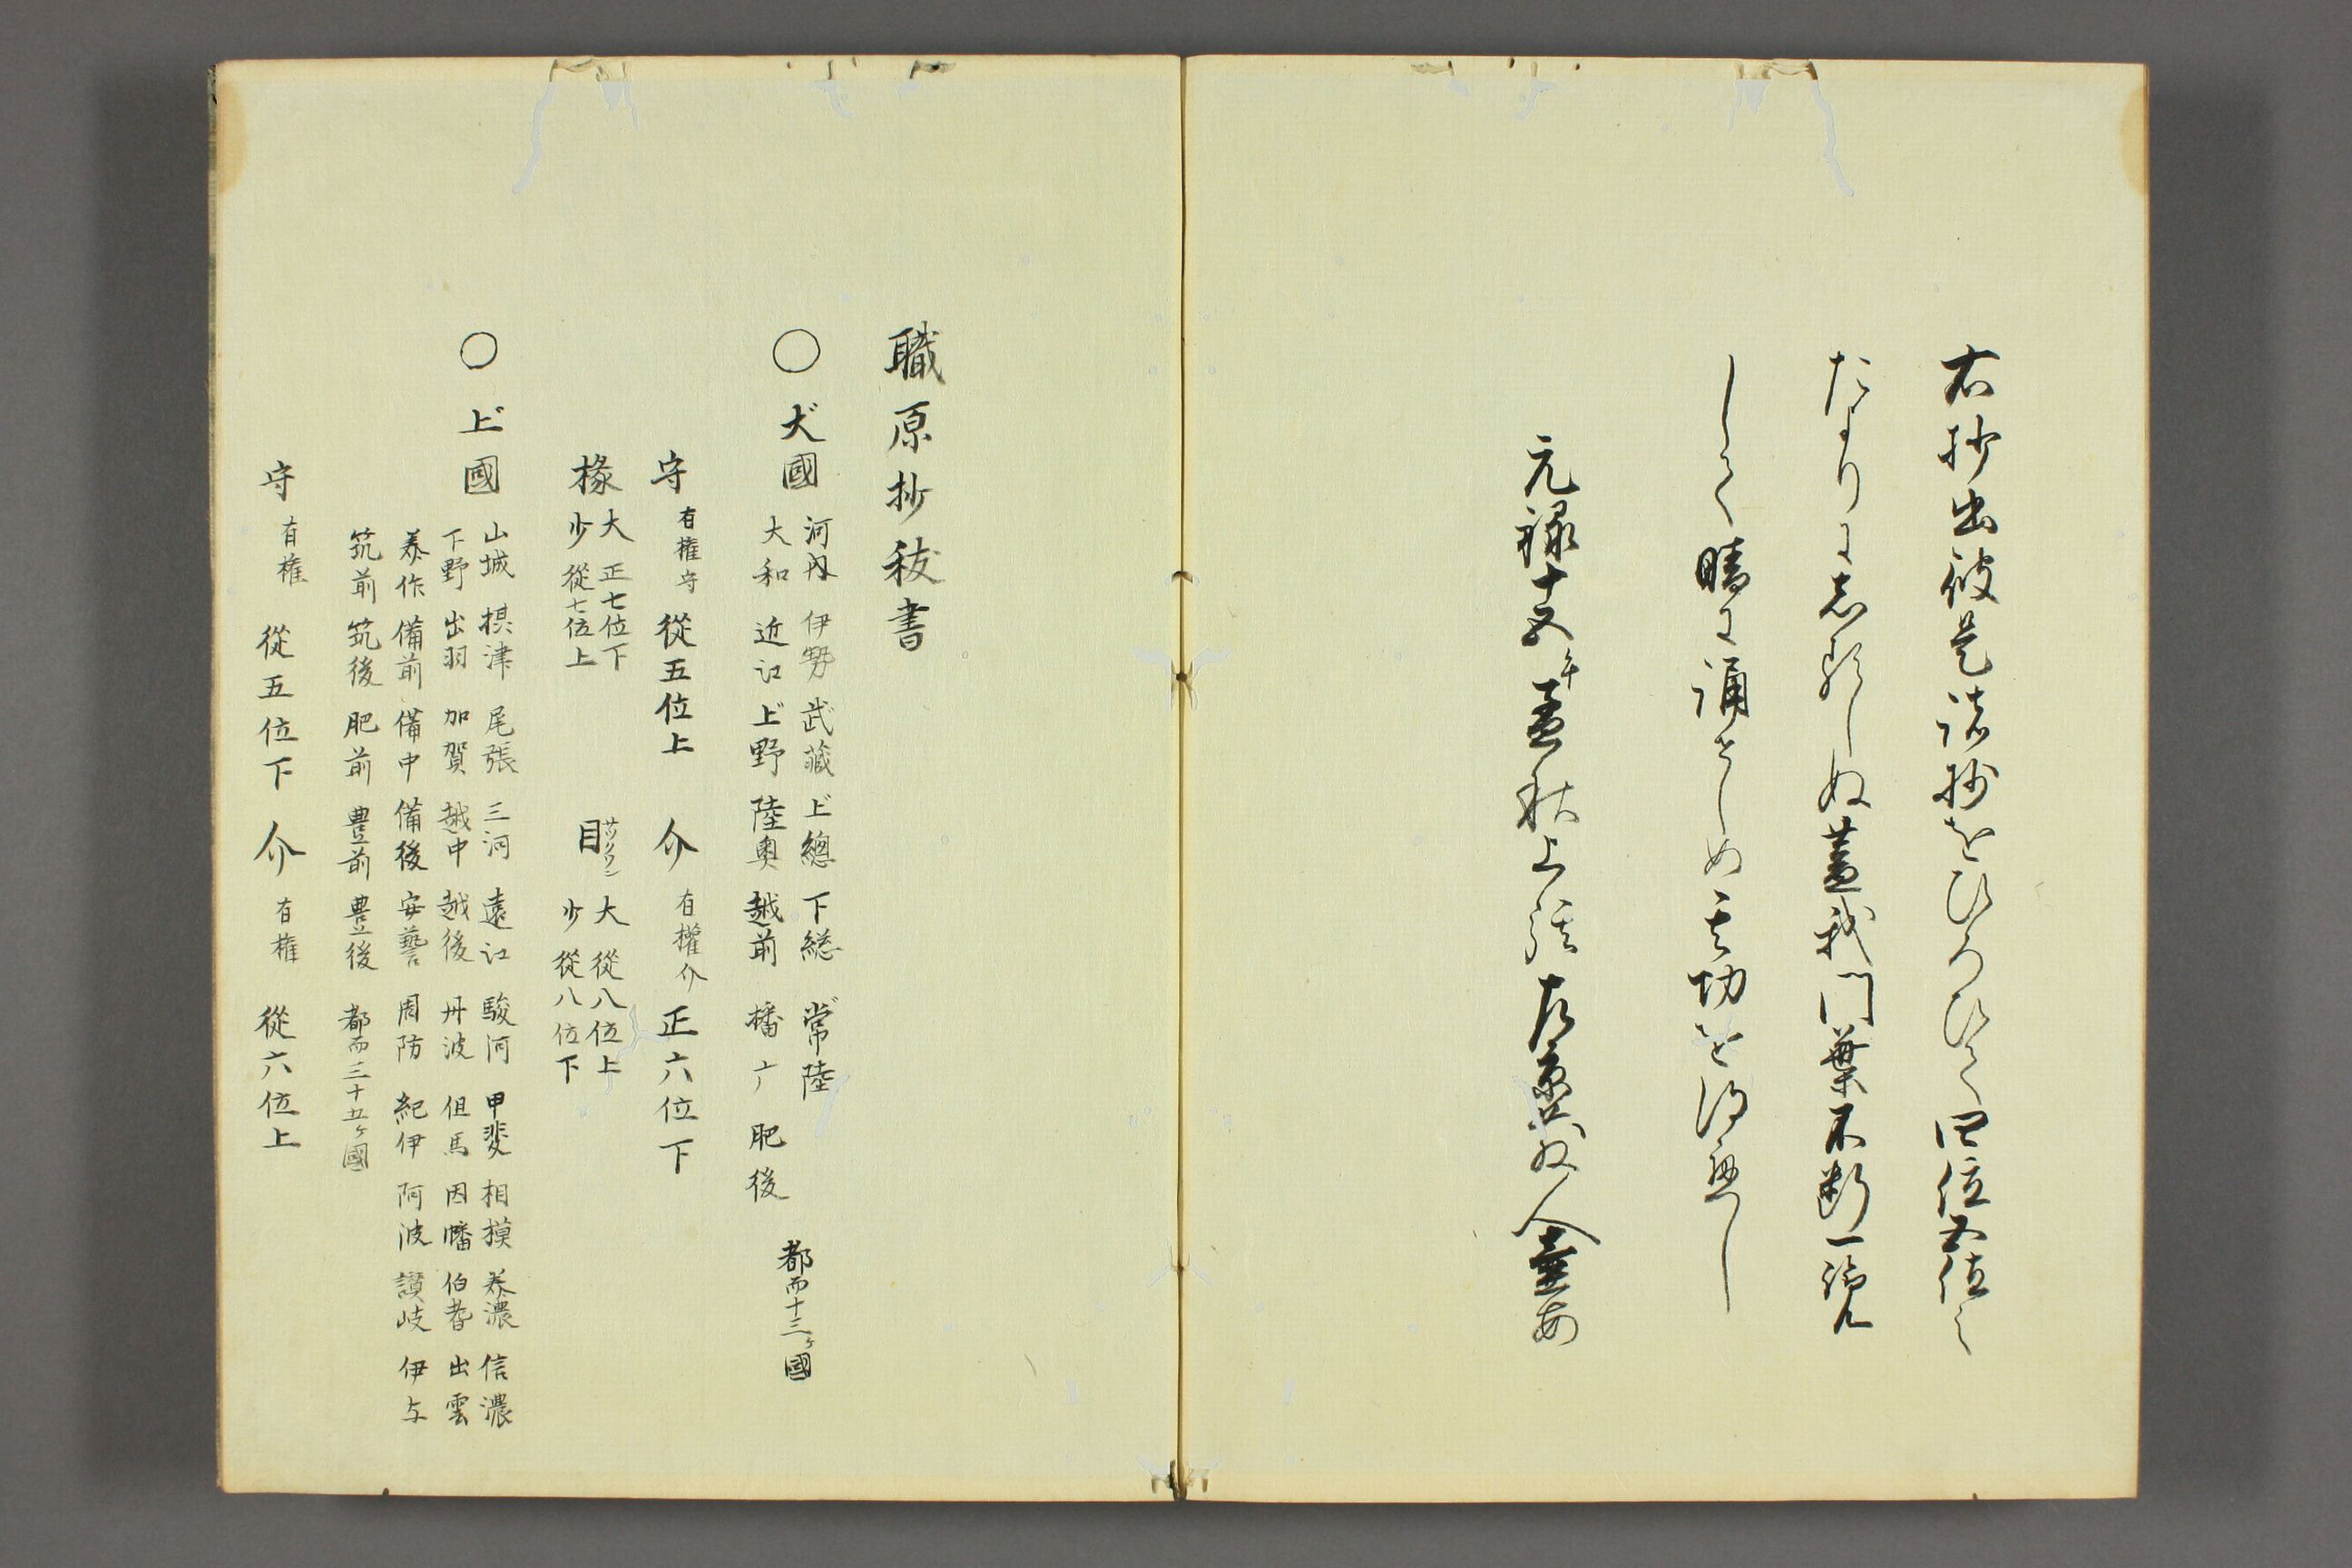 右抄出彼是諸抄をひろひて四位五位之
たよりに志るしぬ蓋我門葉不断一覧
して晴に誦せしめ其功を得へし
元禄十五年孟秋上弦
職原抄秡書
〇大國 河内 伊勢 武藏 上總 下総 常陸
大和 近江 上野 陸奥 越前 播广 肥後 都而十三ヶ國
守 有権守 從五位上 介 有權介 正六位下
掾 大 正七位下 目 サクワン 大 從八位上
少 從七位上 少 從八位下
〇上國 山城 摂津 尾張 三河 遠江 駿河 甲斐 相摸 美濃 信濃
下野 出羽 加賀 越中 越後 丹波 但馬 因幡 伯耆 出雲
美作 備前 備中 備後 安藝 周防 紀伊 阿波 讃岐 伊与
筑前 筑後 肥前 豊前 豊後 都而三十五ヶ國
守 有権 從五位下 介 有権 從六位上